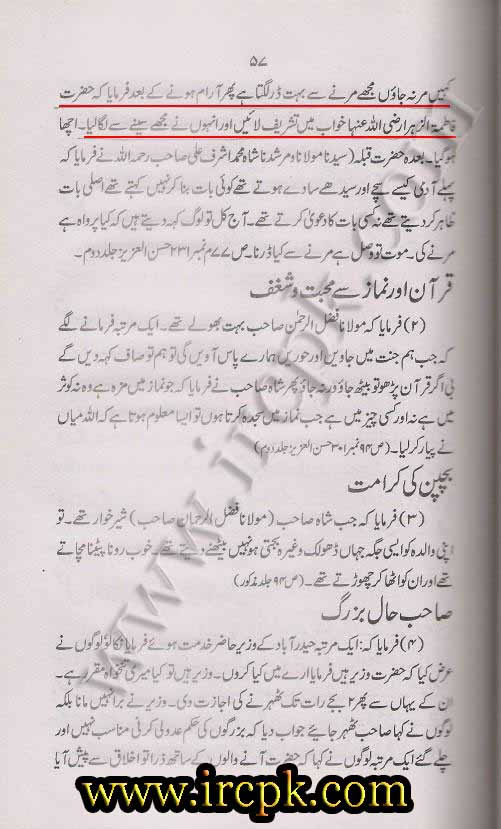 ۵۷
کہیں مر نہ جاؤں مجھے مرنے سے بہت ڈر لگتا ہے پھر آرام ہونے کے بعد فرمایا کہ حضرت
فاطمۃ الزہرا رضی اللہ عنہا خواب میں تشریف لائیں اور انہوں نے مجھے سینے سے لگا لیا۔ اچھا
ہو گیا۔ بعدہ حضرت قبلہ (سیدنا مولانا و مرشدنا شاہ محمد اشرف علی صاحب رحمہ اللہ نے فرمایا کہ
پہلے آدمی کیسے سچے اور سیدھے سادے ہوتے تھے کوئی بات بنا کر نہیں کہتے تھے اصلی بات
ظاہر کر دیتے تھے نہ کسی بات کا دعویٰ کرتے تھے۔ آج کل تو لوگ کہہ دیتے ہیں کہ کیا پرواہ ہے
مرنے کی۔ موت تو وصل ہے مرنے سے کیا ڈرنا۔ ص۷۷ نمبر۲۳۱ حسن العزیز جلد دوم۔
قرآن اور نماز سے محبت و شغف
(۲) فرمایا کہ مولانا فضل الرحمٰن صاحب بہت بھولے تھے۔ ایک مرتبہ فرمانے لگے
کہ جب ہم جنت میں جاویں اور حوریں ہمارے پاس آویں گی تو ہم تو صاف کہہ دیں گے
بی اگر قرآن پڑھو تو بیٹھ جاؤ ورنہ جاؤ پھر شاہ صاحب نے فرمایا کہ جو نماز میں مزہ ہے وہ نہ کوثر
میں ہے نہ اور کسی چیز میں ہے جب نماز میں سجدہ کرتا ہوں تو ایسا معلوم ہوتا ہے کہ اللہ میاں
نے پیار کر لیا۔ (ص۹۴ نمبر۳۰۱ حسن العزیز جلد دوم)
بچپن کی کرامت
(۳) فرمایا کہ جب شاہ صاحب (مولانا فضل الرحمان صاحب) شیر خوار تھے۔ تو
اپنی والدہ کو ایسی جگہ جہاں ڈھولک وغیرہ بجتی ہو نہیں بیٹھنے دیتے تھے۔ خوب رونا پیٹنا مچاتے
تھے اور ان کو اٹھا کر چھوڑتے تھے۔ (ص۹۴ جلد مذکور)
صاحب حال بزرگ
(۴) فرمایا کہ: ایک مرتبہ حیدرآباد کے وزیر حاضر خدمت ہوئے فرمایا نکالو لوگوں نے
عرض کیا کہ حضرت وزیر ہیں فرمایا ارے میں کیا کروں۔ وزیر ہیں تو کیا میری تنخواہ مقرر ہے۔
ان کے یہاں سے پھر ۲ بجے رات تک ٹھہرنے کی اجازت دی۔ وزیر نے برا نہیں مانا بلکہ
لوگوں نے کہا صاحب ٹھہر جایئے جواب دیا کہ بزرگوں کی حکم عدولی کرنی مناسب نہیں اور
چلے گئے ایک مرتبہ لوگوں نے کہا کہ حضرت آنے والوں کے ساتھ ذرا تو اخلاق سے پیش آیا
www.ircpk.com
www.ircpk.com